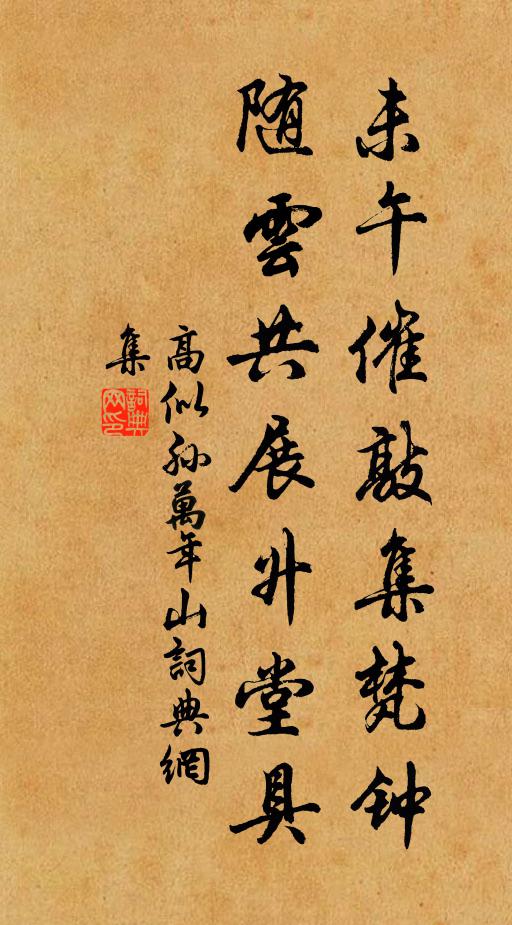 未午催敲集梵钟
随雲共展升堂具
高似孙萬年山詞典網
集
詞典
网印